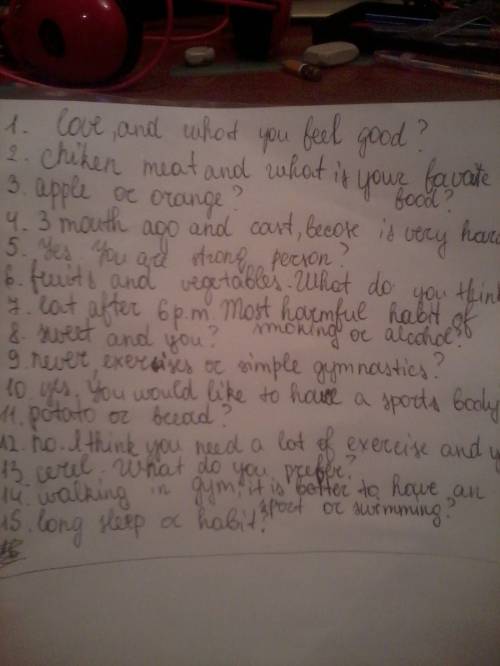 1. love, and what you feel good?
2. chiken meat and what is your favarite food?
3. apple or orange?
4. 3 mouth ago and cast, becose is very hard
5. Yes. You are strong person?
6. fruits and vegetables. What do you think
7. eat after 6 p.m. Most harmful habit of smoking or alcohol?
8. sweet and you?
9. never, exercises or simple gymnastics?
10. yes, you would like to have a sports body
11. potato or bread?
12. no. I think you need a lot of exercise and
13. cerel. What do you prefer?
14. walking in gym, it is better to have an sport or swimming?
15. long sleep or habit?